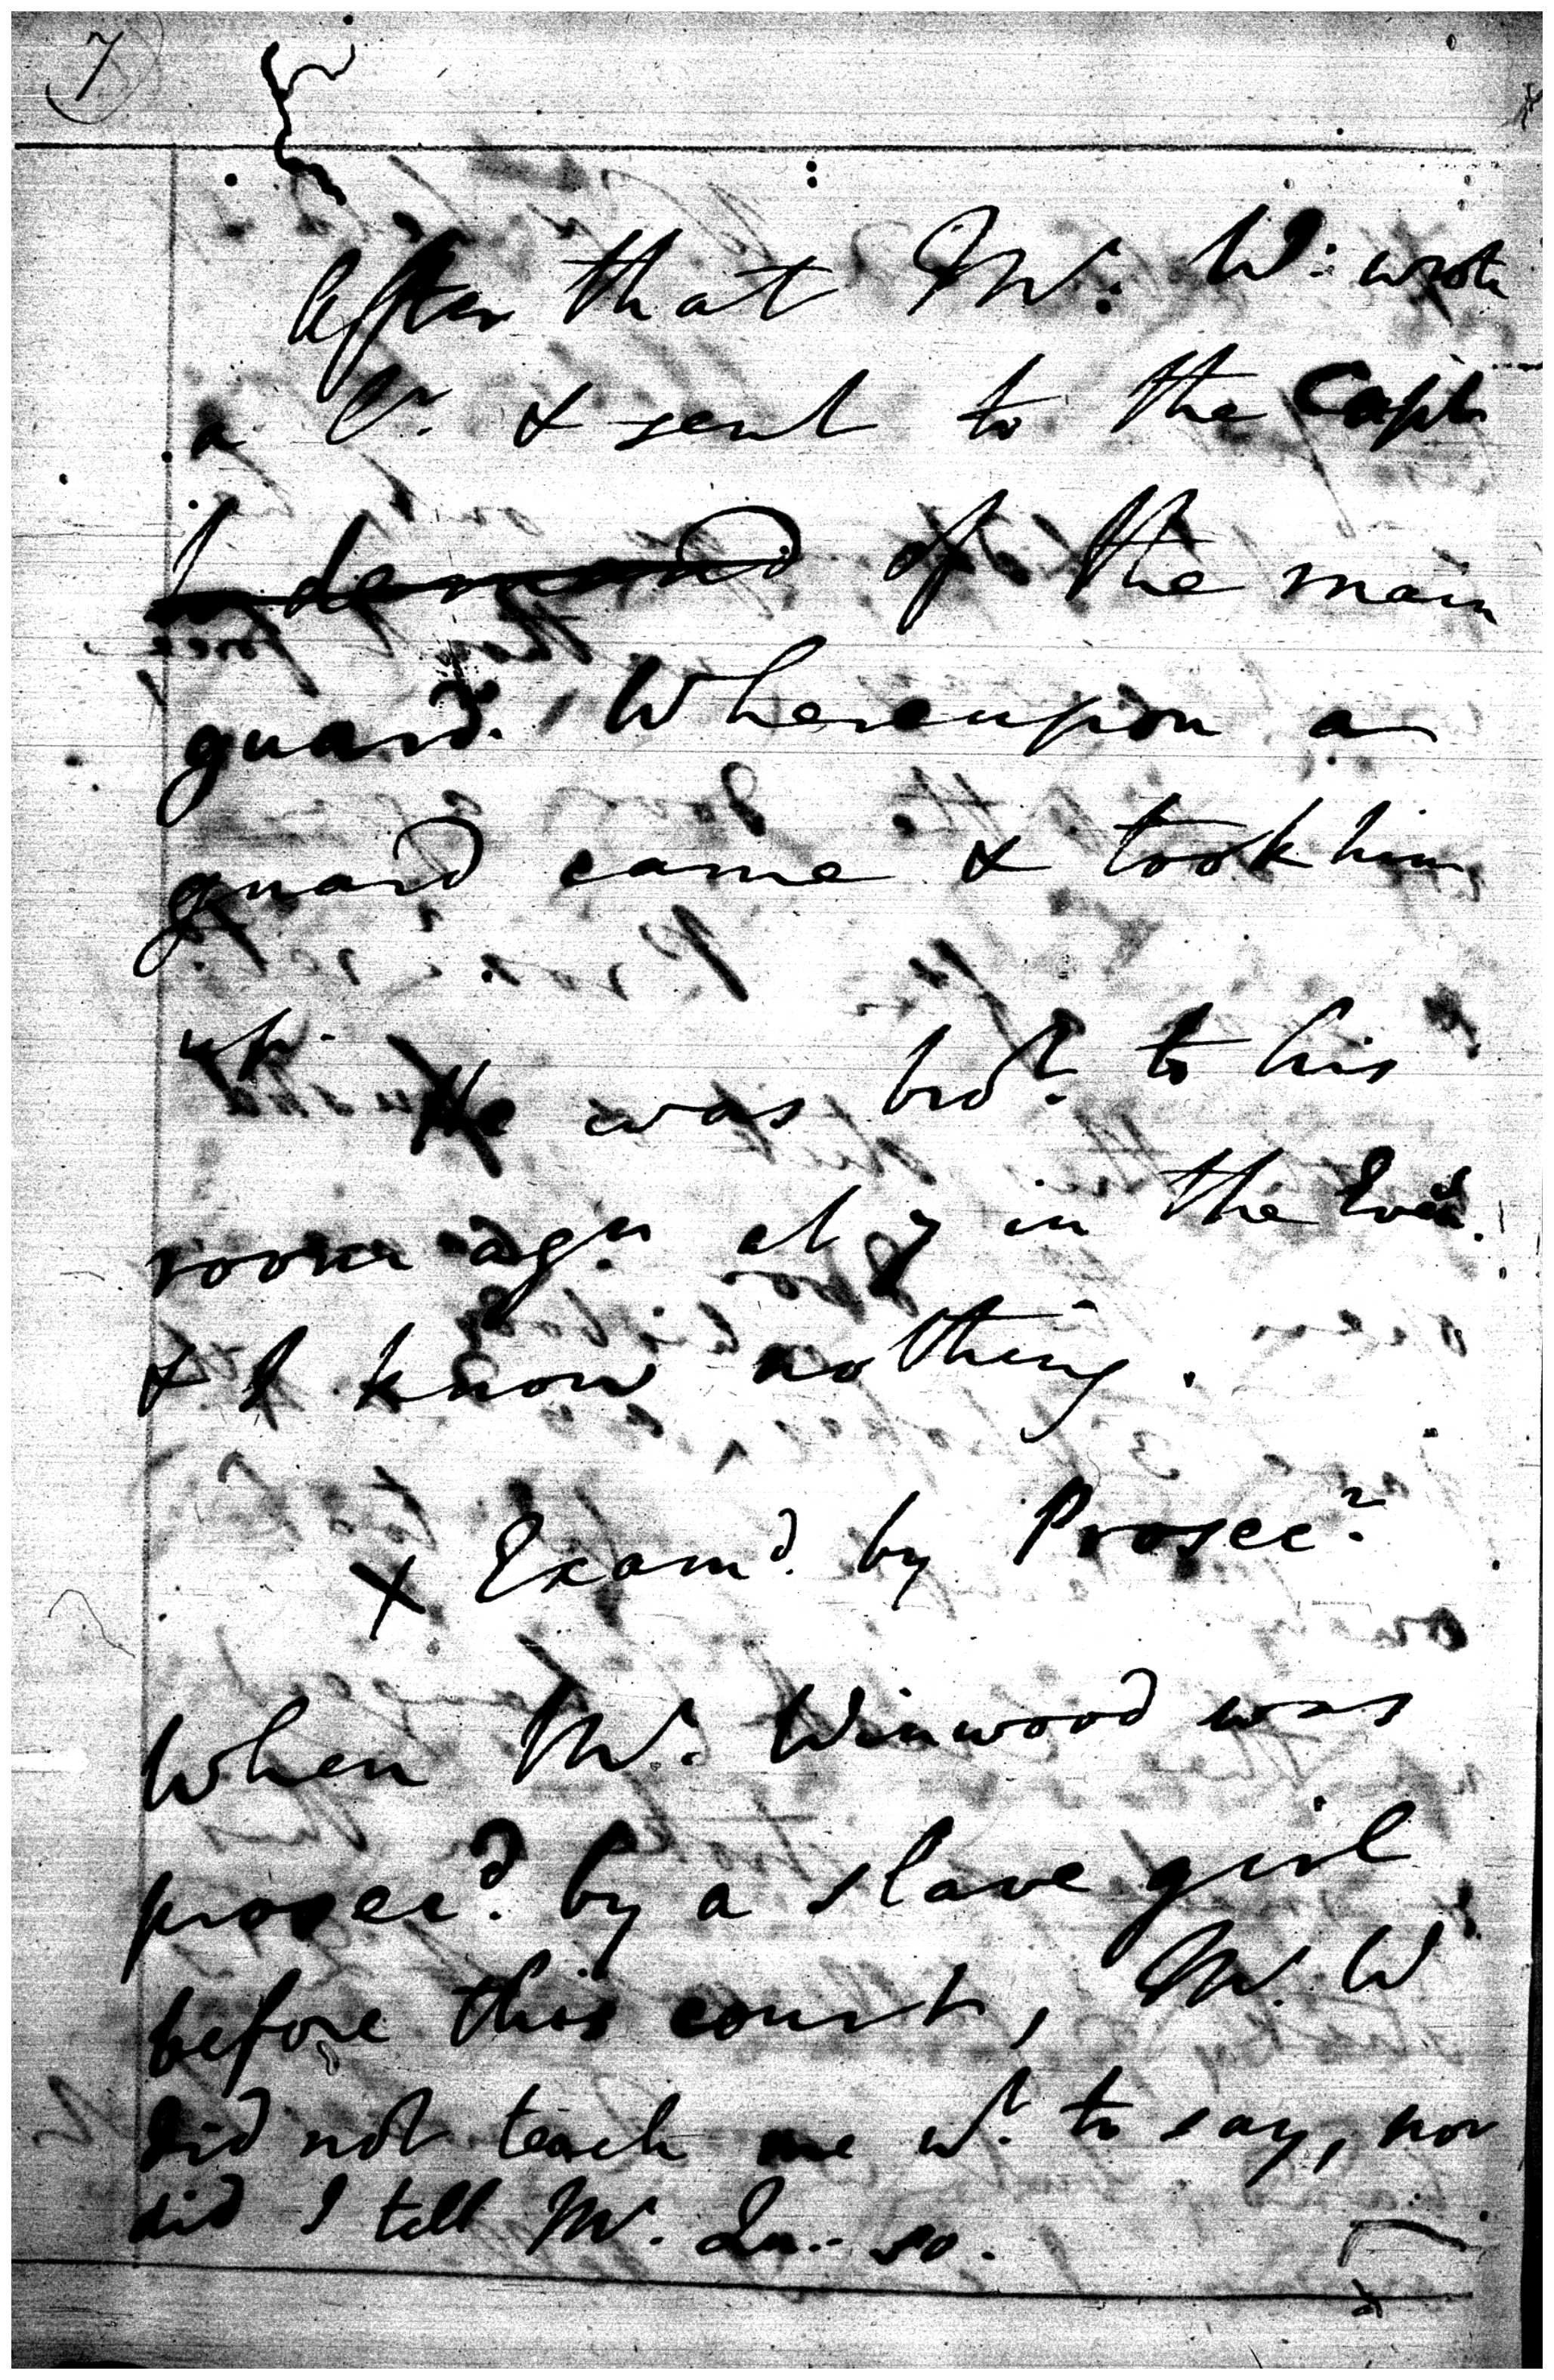 7
After that Mr. W: wrote
a Lr. & sent to the Capt.
to demand of the main
guard. Whereupon a
guard came & took him
up. He was brot. to his
room agn. at 7 in the Eveg.
& I know nothing.
X Examd. by Prosecr.
When Mr. Winwood was
prosecd. by a slave girl
before this court, Mr. W
did not teach me wt. to say, nor
did I tell Mr. Qu.. so.